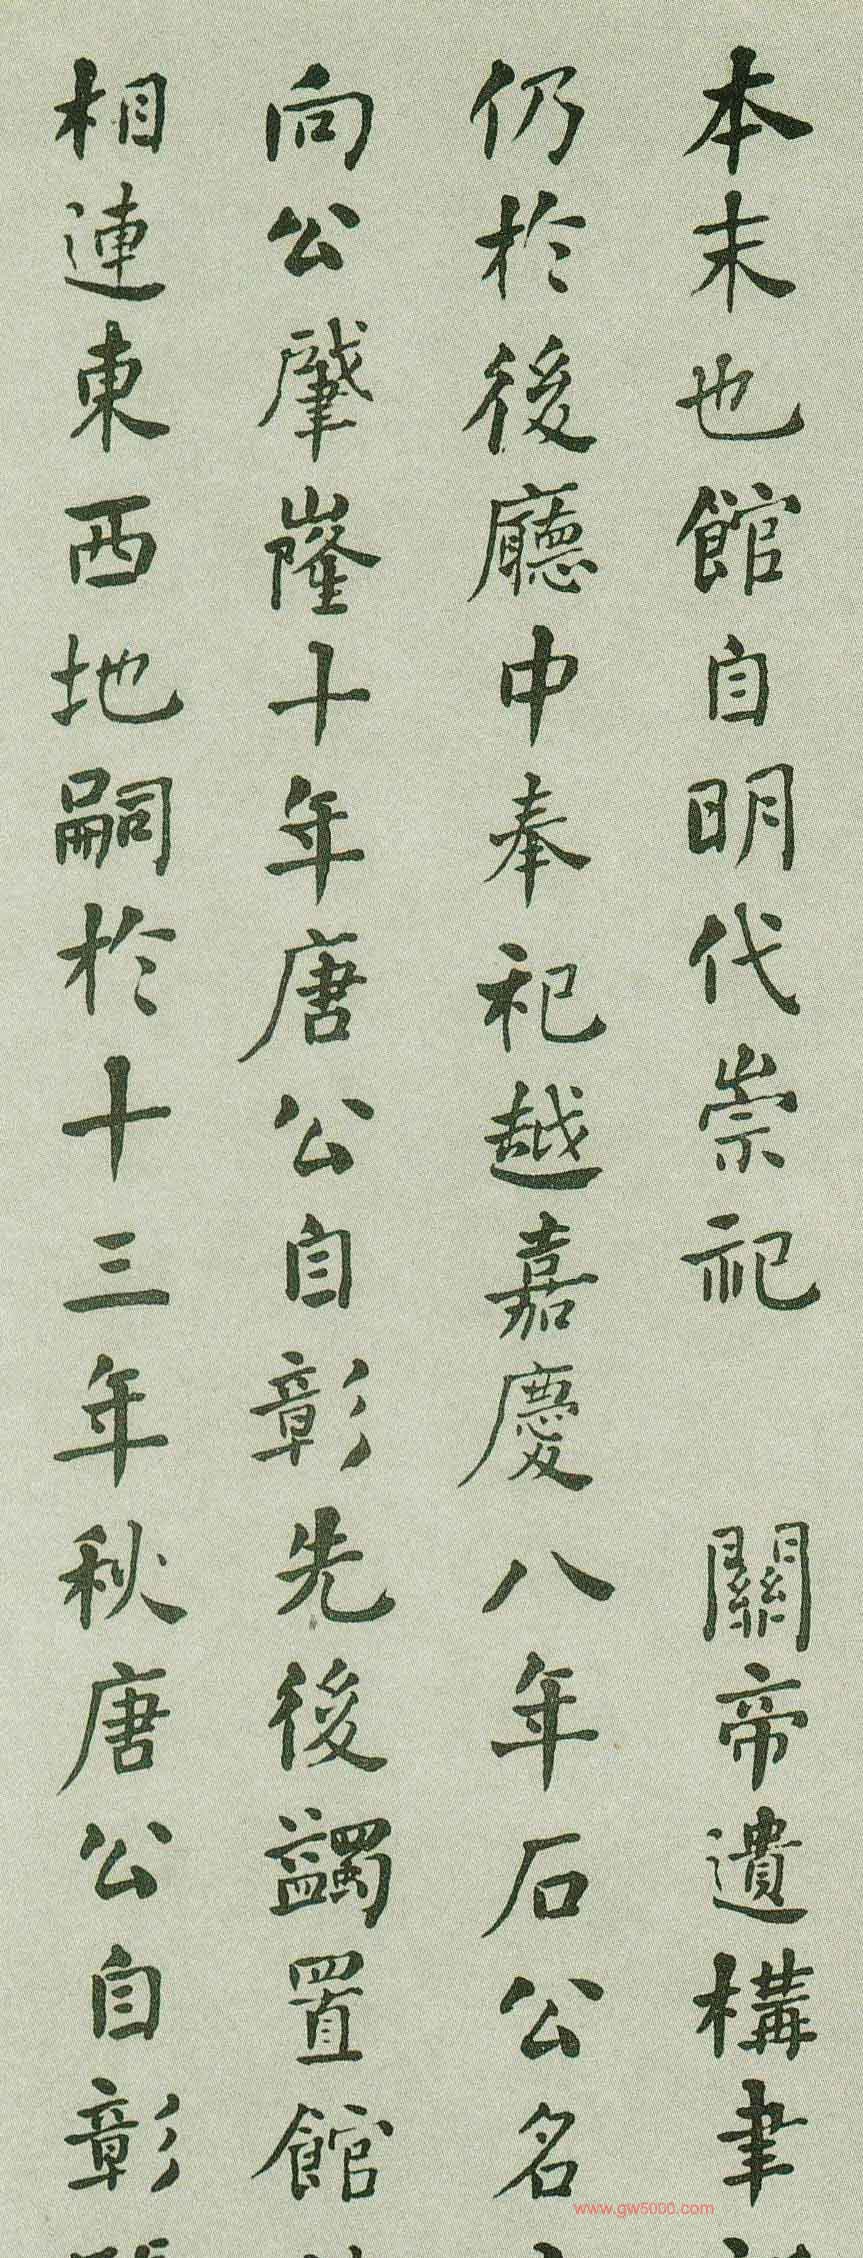 本末也館自明代崇祀 關帝遺構聿
仍於後廳中奉祀越嘉慶八年石公名
向公肇嶐十年唐公自彰先後蠲置館
相連東西地嗣於十三年秋唐公自彰
www.gw5000.com